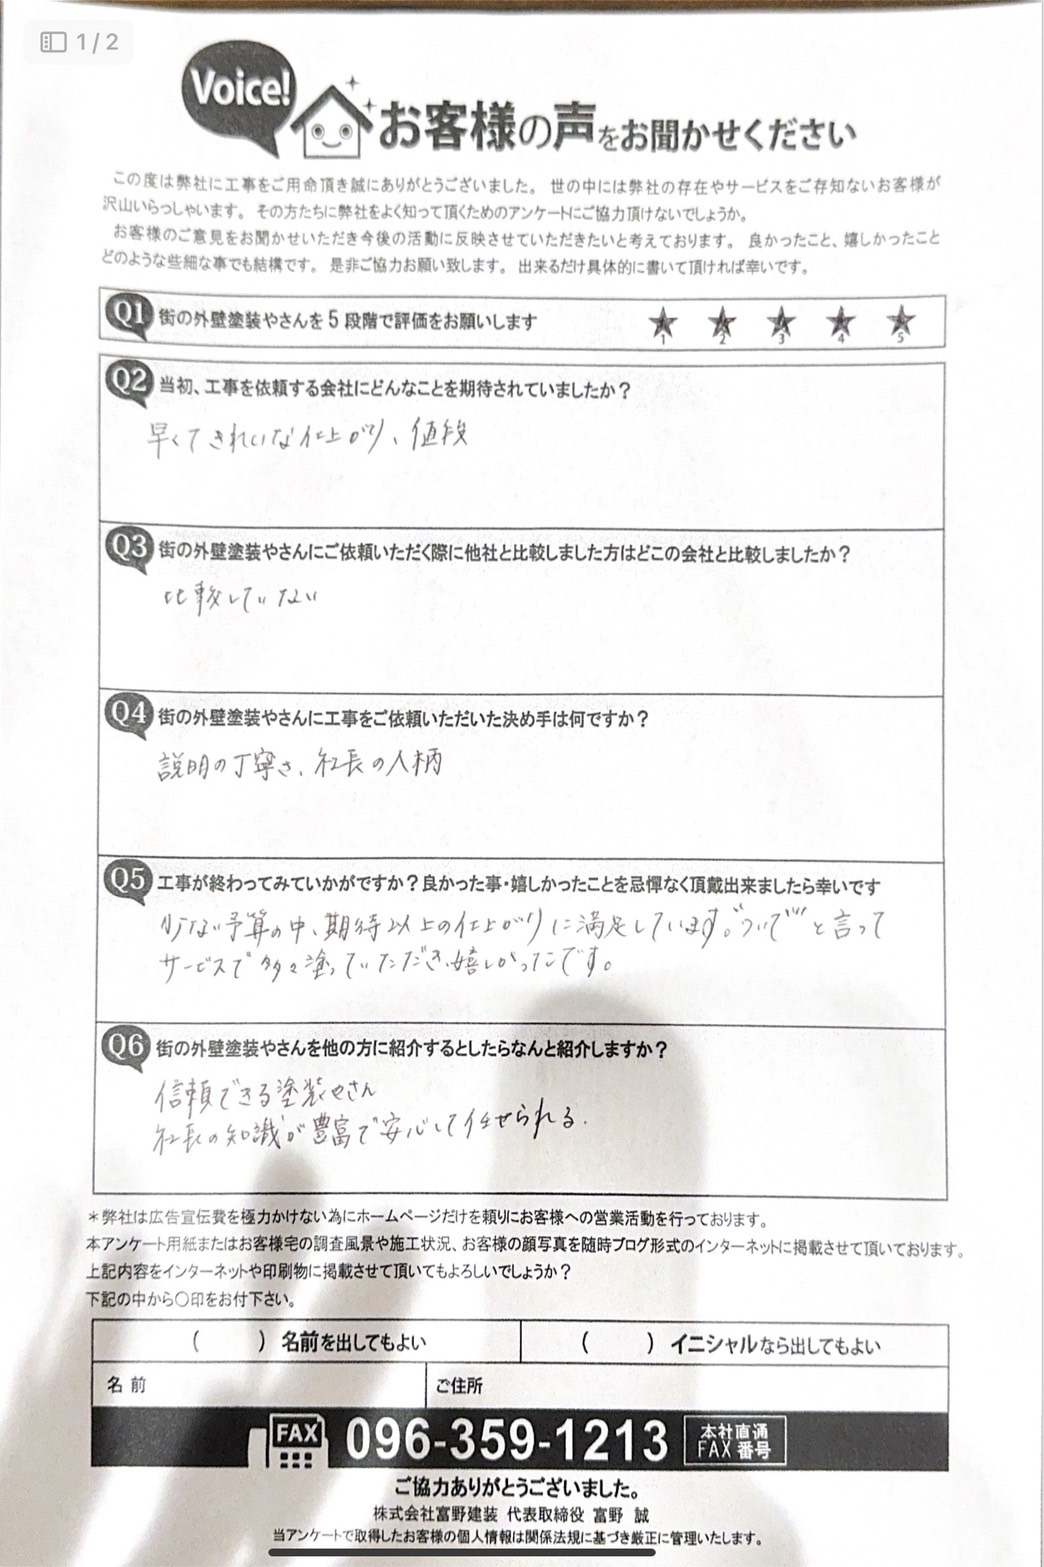 1/2
Voice!
お客様の声をお聞かせください
この度は弊社に工事をご用命頂き誠にありがとうございました。 世の中には弊社の存在やサービスをご存知ないお客様が
沢山いらっしゃいます。 その方たちに弊社をよく知って頂くためのアンケートにご協力頂けないでしょうか。
お客様のご意見をお聞かせいただき今後の活動に反映させていただきたいと考えております。 良かったこと、嬉しかったこと
どのような些細な事でも結構です。 是非ご協力お願い致します。 出来るだけ具体的に書いて頂ければ幸いです。
Q1 街の外壁塗装やさんを5段階で評価をお願いします
1 2 3 4 5
Q2 当初、工事を依頼する会社にどんなことを期待されていましたか？
早くてきれいな仕上がり、値段
Q3 街の外壁塗装やさんにご依頼いただく際に他社と比較しました方はどこの会社と比較しましたか？
比較していない
Q4 街の外壁塗装やさんに工事をご依頼いただいた決め手は何ですか？
説明の丁寧さ、社長の人柄
Q5 工事が終わってみていかがですか？良かった事・嬉しかったことを忌憚なく頂戴出来ましたら幸いです
少ない予算の中、期待以上の仕上がりに満足しています。"ついで"と言って
サービスで多々塗っていただき嬉しかったです。
Q6 街の外壁塗装やさんを他の方に紹介するとしたらなんと紹介しますか？
信頼できる塗装やさん
社長の知識が豊富で安心して任せられる.
＊弊社は広告宣伝費を極力かけない為にホームページだけを頼りにお客様への営業活動を行っております。
本アンケート用紙またはお客様宅の調査風景や施工状況、お客様の顔写真を随時ブログ形式のインターネットに掲載させて頂いております。
上記内容をインターネットや印刷物に掲載させて頂いてもよろしいでしょうか？
下記の中から〇印をお付下さい。
（　　）名前を出してもよい （　　）イニシャルなら出してもよい
名前 ご住所
FAX 096-359-1213 本社直通 FAX番号
ご協力ありがとうございました。
株式会社富野建装 代表取締役 富野 誠
当アンケートで取得したお客様の個人情報は関係法規に基づき厳正に管理いたします。